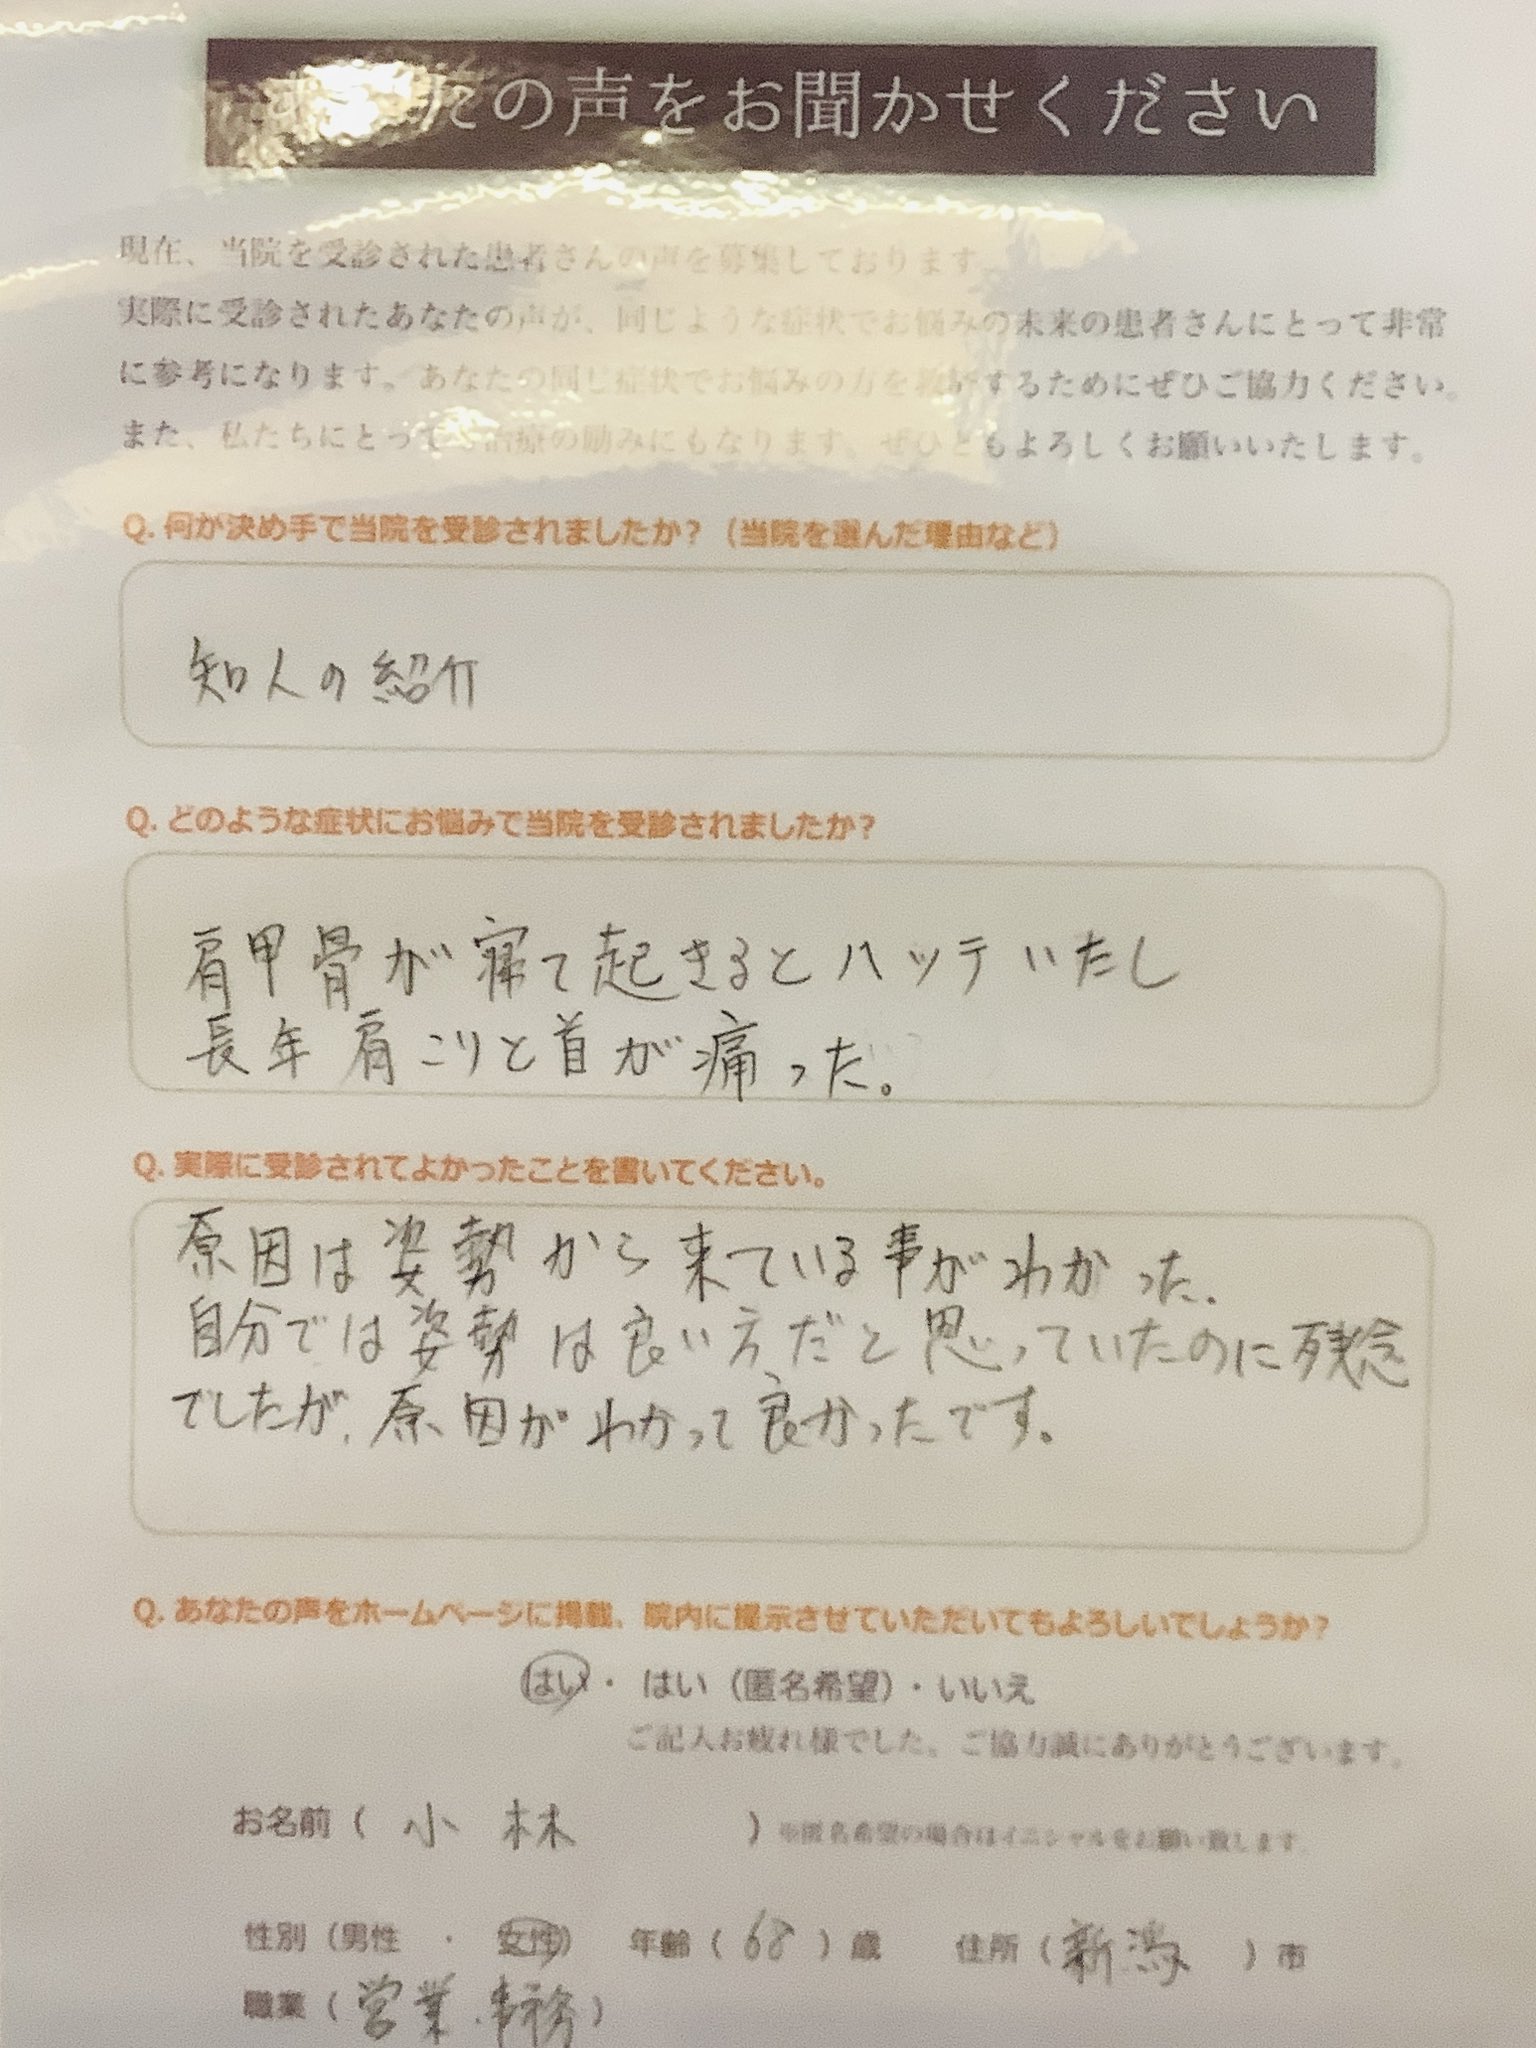 たの声をお聞かせください
現在、当院を受診された患者さんの声を募集しております。
実際に受診されたあなたの声が、同じような症状でお悩みの未来の患者さんにとって非常
に参考になります。あなたの同じ症状でお悩みの方を救済するためにぜひご協力ください。
また、私たちにとっても治療の励みにもなります。ぜひともよろしくお願いいたします。
Q. 何が決め手で当院を受診されましたか?(当院を選んだ理由など)
知人の紹介
Q. どのような症状にお悩みで当院を受診されましたか?
肩甲骨が寝て起きるとハッテいたし
長年肩こりと首が痛っだ。
Q. 実際に受診されてよかったことを書いてください。
原因は姿勢から来ている事がわかった.
自分では姿勢は良い方だと思っていたのに残念
でしたが、原因がわかって良かったです。
Q. あなたの声をホームページに掲載、院内に提示させていただいてもよろしいでしょうか?
はい・はい(匿名希望)・いいえ
ご記入お疲れ様でした。ご協力誠にありがとうございます。
お名前(小林)※匿名希望の場合はイニシャルをお願い致します。
性別(男性・女性) 年齢(68)歳 住所(新潟)市
職業(営業.事務)